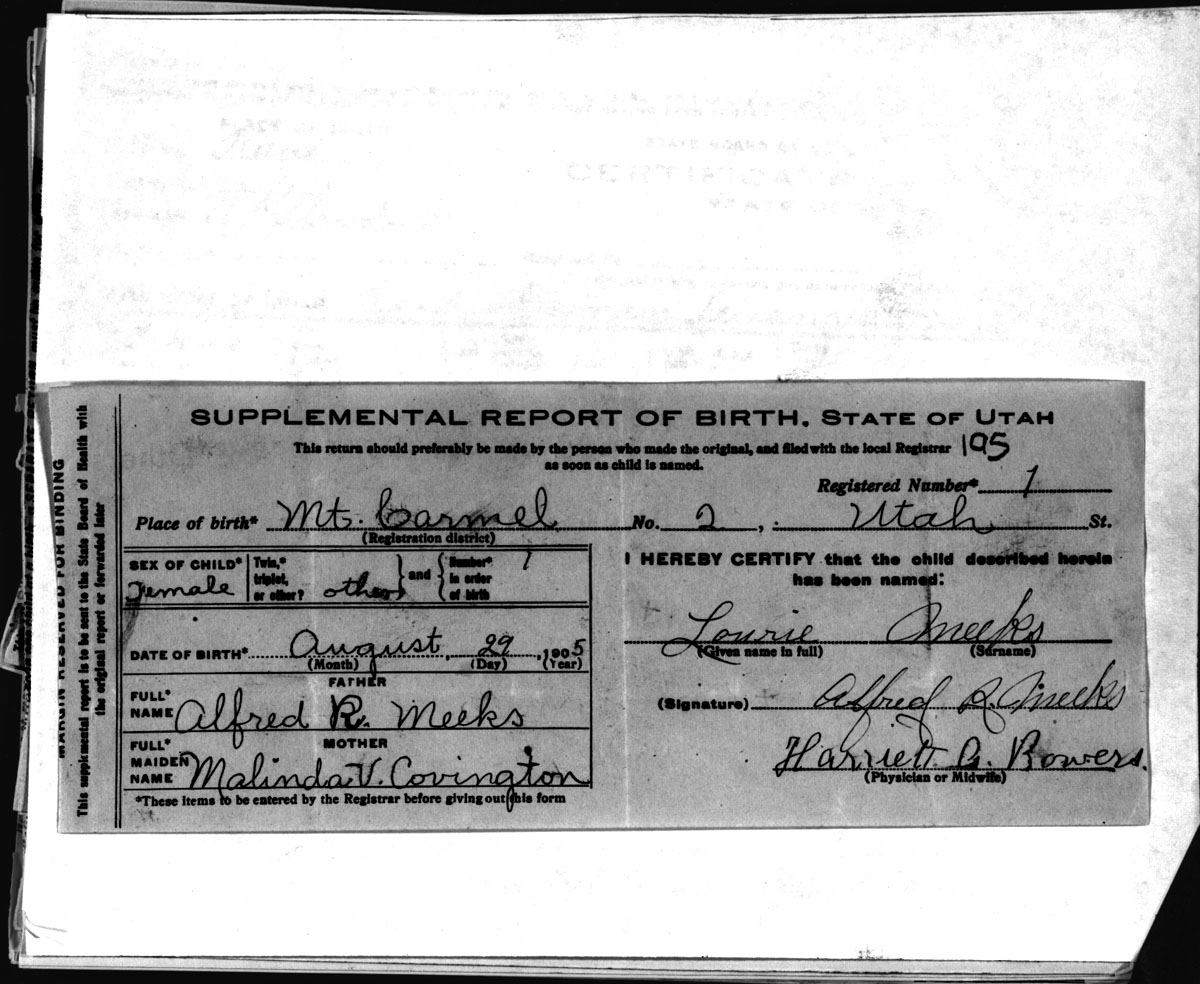 SUPPLEMENTAL REPORT OF BIRTH. STATE OF UTAH
This return should preferably be made by the person who made the original, and filed with the local Registrar 195
as soon as child is named.
Registered Number* 1
Place of birth* Mt. Carmel No. 2, Utah St.
(Registration district)
SEX OF CHILD* Female
Twin,* triplet, or other? other
and
Number* in order of birth 1
DATE OF BIRTH* August, 29, 1905
(Month) (Day) (Year)
FATHER
FULL* NAME Alfred R. Meeks
MOTHER
FULL* MAIDEN NAME Malinda V. Covington
*These items to be entered by the Registrar before giving out this form
I HEREBY CERTIFY that the child described herein
has been named:
Lourie Meeks
(Given name in full) (Surname)
(Signature) Alfred R. Meeks
Harriett B. Bowers.
(Physician or Midwife)
MARGIN RESERVED FOR BINDING
This supplemental report is to be sent to the State Board of Health with
the original report or forwarded later